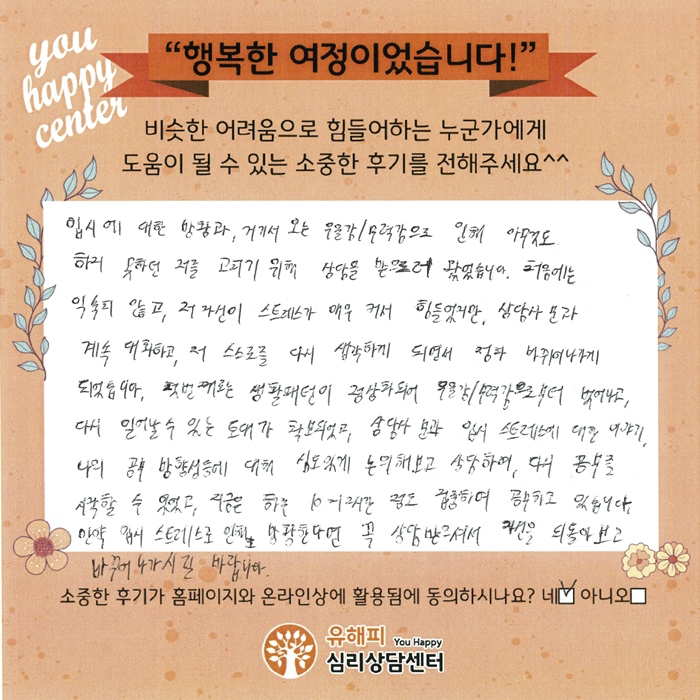 you
happy
center
“행복한 여정이었습니다!”
비슷한 어려움으로 힘들어하는 누군가에게
도움이 될 수 있는 소중한 후기를 전해주세요^^
입시에 대한 방황과, 거기서 오는 우울감/무력감으로 인해 아무것도
하지 못하던 저를 고치기 위해 상담을 받으러 왔었습니다. 처음에는
익숙치 않고, 저 자신이 스트레스가 매우 커서 힘들었지만, 상담사 분과
계속 대화하고, 저 스스로를 다시 생각하게 되면서 점차 바뀌어나가게
되었습니다. 첫번째로는 생활패턴이 정상화되어 우울감/무력감으로부터 벗어나고,
다시 일어날 수 있는 토대가 확보되었고, 상담사 분과 입시 스트레스에 대한 이야기,
나의 공부 방향성들에 대해 심도있게 논의해보고 상담하여, 다시 공부를
시작할 수 있었고, 지금은 하루 10시간 정도 집중하여 공부하고 있습니다.
만약 입시 스트레스로 인해 방황한다면 꼭 상담받으셔서 자신을 되돌아보고
바꾸어 나가시길 바랍니다.
소중한 후기가 홈페이지와 온라인상에 활용됨에 동의하시나요? 네☑ 아니오☐
유해피 You Happy
심리상담센터